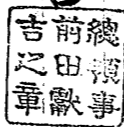 總領事
前田獻
吉之章